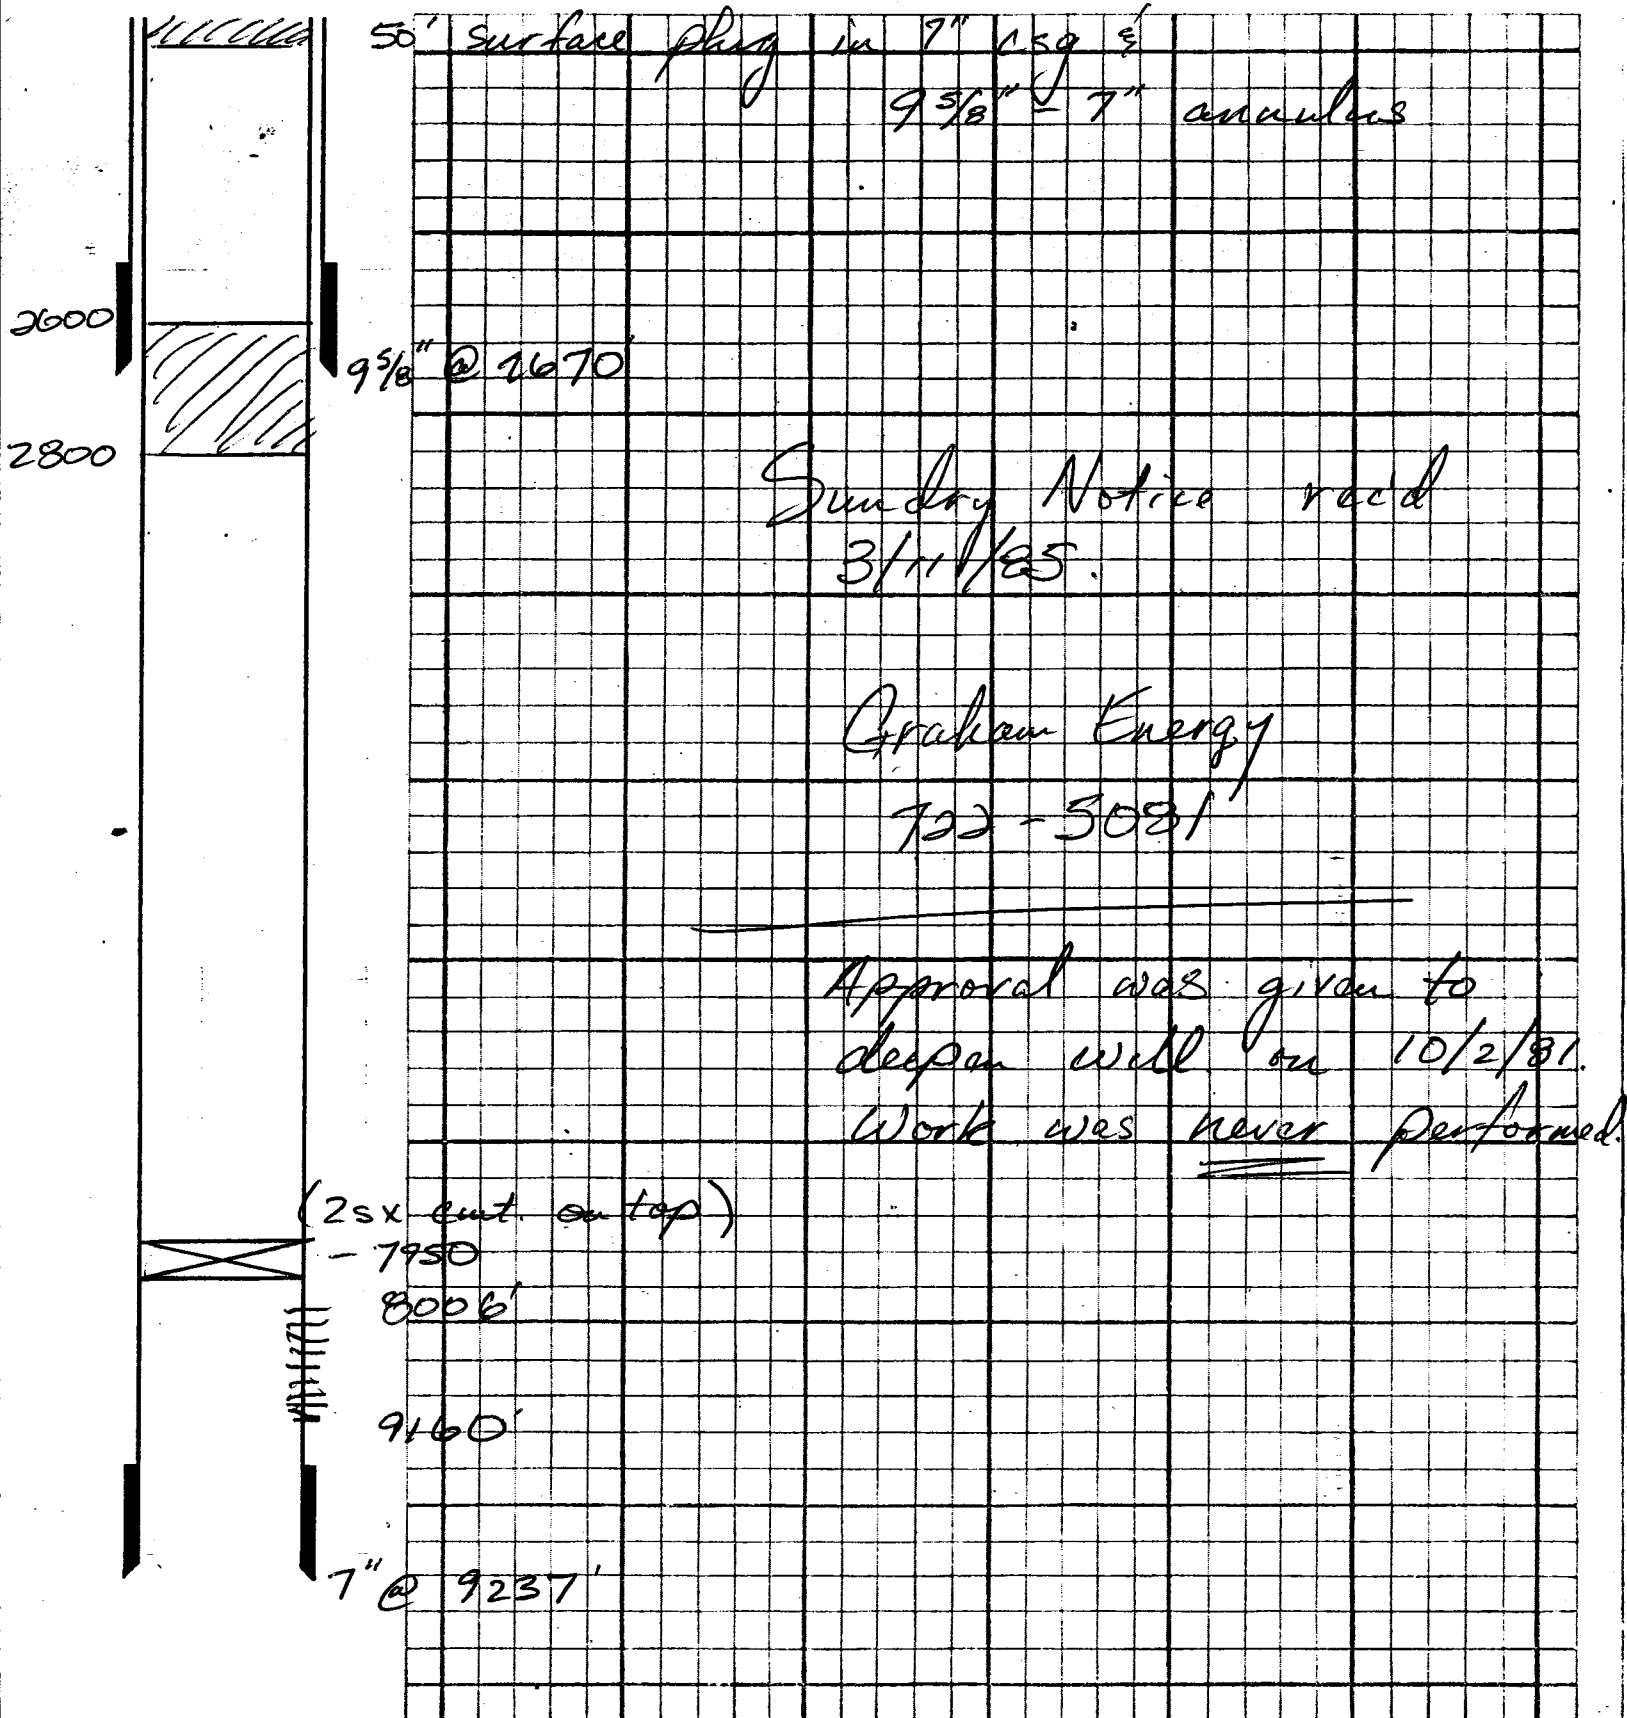 50' surface plug in 7" csg &
9 5/8" - 7" annulus
2600
9 5/8" @ 2670'
2800
Sundry Notice rec'd
3/11/85.
Graham Energy
722-5081
Approval was given to
deepen well on 10/2/81.
Work was never performed.
(2sx cmt. on top)
- 7950
8006'
9160'
7" @ 9237'